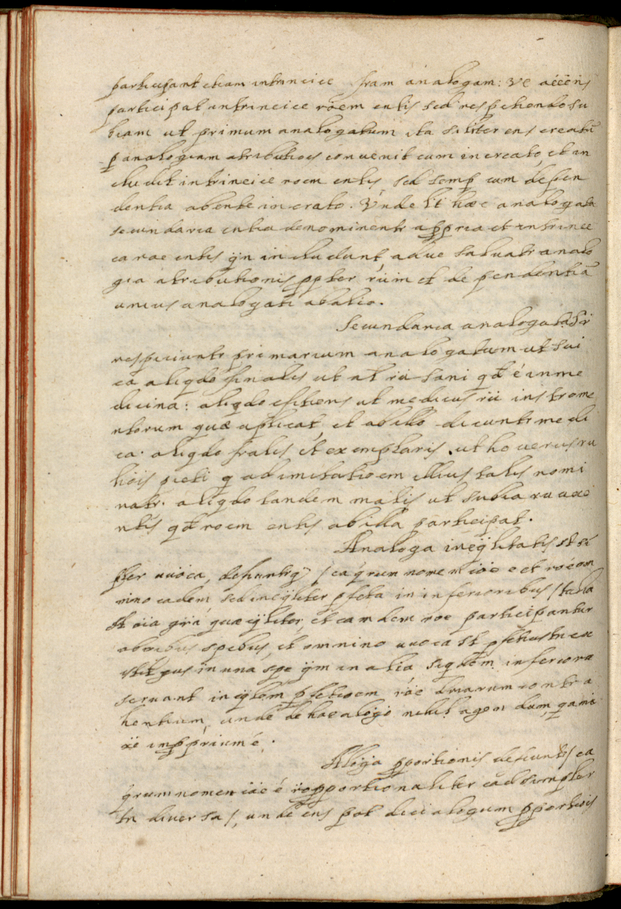 participant etiam intrincice fram analogam: Ut accens
participat intrincice roem entis sed respiciendo su
tiam ut primum analogatum ita siliter ens creatū
p analogiam atributiois convenit cum increato, et in
cludit intrincice roem entis sed semp cum depen
dentia ab ente increato. Unde lt hæc analogata
secundaria entia denominentr apprea et intrince
ca roe entis qn includunt adue salvatr analo
gia atributionis ppter rūm et dependentiā
unius analogati ab alio.
Secundaria analogata Sr
respiciuntr primarium analogatum ut sui
cā aliqdo finalis ut al rū sani qd ē in me
dicina: aliqdo efitiens ut medicus rū instrome
ntorum quæ aplicat et ab illo dicuntr medi
ca. aliqdo fralis et exemplaris, ut ho verus ru
hois picti q ad imitatioem illius talis nomi
natr. aliqdo tandem malis ut subia ru acci
ntis qd roem entis ab illa participat.
Analoga ineqlitatis st si
pter uvoca, defiuntrq ea qrum nomen iōe e et ro eon
nino eadem sed ineqliter pfeta in inferioribus, talia
st oia gria quæ eqliter et eamdem roe participantur
ab oibus spebus, et omnino uvoca st
in una spe qm in alia siqdem inferiora
servant ineqlem pfetioem roe drarum contra
hentium, unde de hac aligo nihil agendum, qa nis
ōe impprium ē.
Aloga pportionis defiuntr ea
qrum nomen iōe ē ro pportionaliter ead simpler
tr diversa, unde ens pot dici alogum pportiois